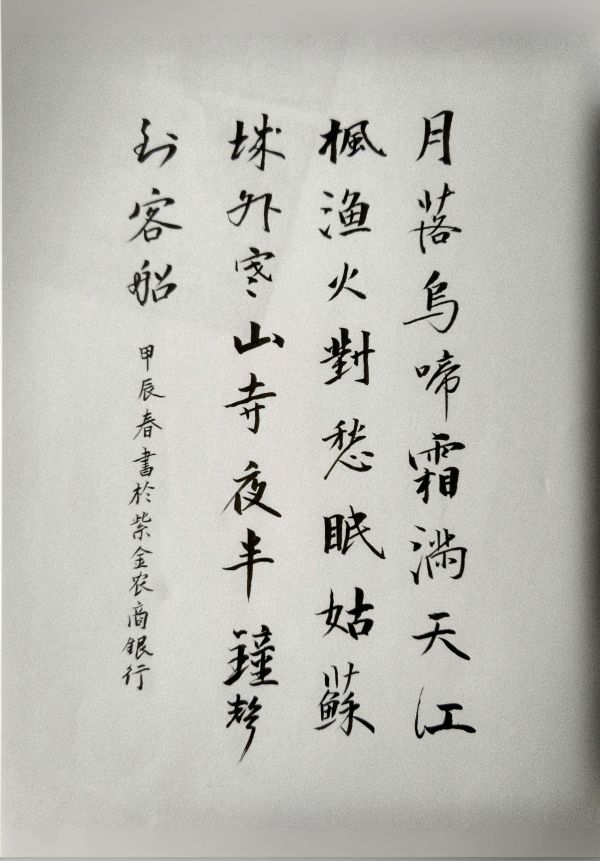 月落烏啼霜滿天江
楓漁火對愁眠姑蘇
城外寒山寺夜半鐘聲
到客船
甲辰春書於紫金农商銀行